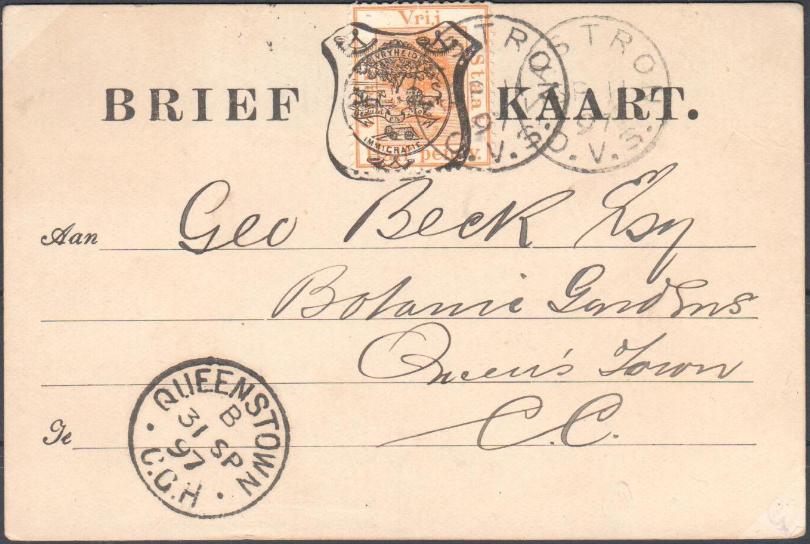 Vrij
Staat
BRIEF KAART.
VRYHEID
IMMIGRATIE
STRO
O.V.S.
STRO
O.V.S.
Aan Geo Beck Esq
Botanic Gardens
Queen's Town
Te C.C.
QUEENSTOWN
B
31 SP
97
C.G.H